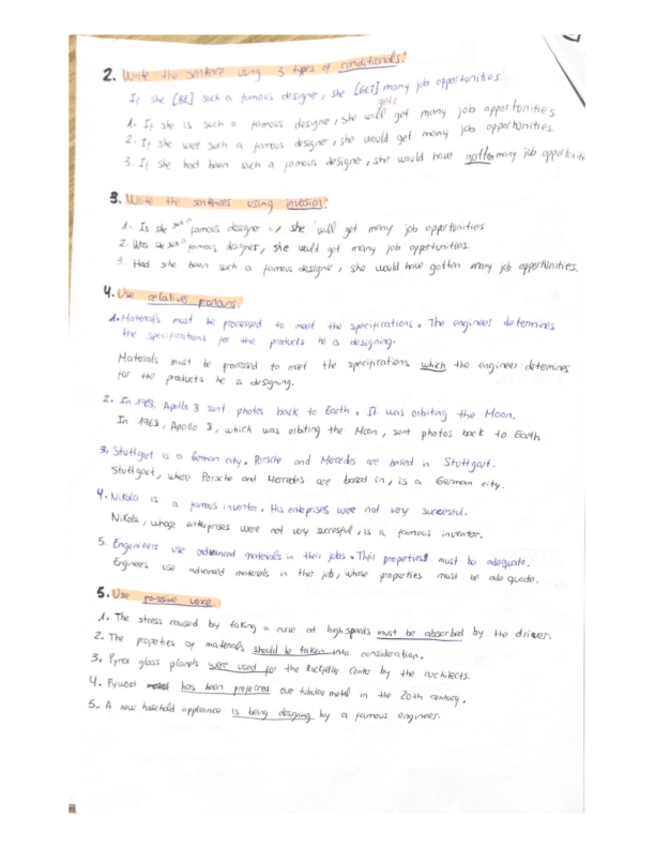 2. Write the sentence using 3 types of conditionals!
If she [BE] such a famous designer, she [GET] many job opportunities.
gets
1. If she is such a famous designer, she will get many job opportunities.
2. If she wet such a famous designer, she would get many job opportunities.
3. If she had been such a famous designer, she would have gotten many job opportunitie
3. Write the sentences using invesion!
1. Is she such a famous designer, she will get many job opportunities
2. Was she such a famous designer, she would get many job opportunities.
3. Had she been such a famous designe, she would have gotten many job opportunities.
4. Use relative pronouns!
1. Materials must be processed to meet the specifications. The engineer determines
the specifications for the products he is designing.
Materials must be processed to meet the specifications which the engineer determines
for the products he is designing.
2. In 1968, Apollo 8 sent photos back to Earth. It was orbiting the Moon.
In 1968, Apollo 8, which was orbiting the Moon, sent photos back to Earth
3. Stuttgart is a German city. Porsche and Mercedes are based in Stuttgart.
Stuttgart, where Porsche and Mercedes are based in, is a German city.
4. Nikola is a famous inventor. His enteprises were not very succesful.
Nikola, whose enterprises were not very succesful, is a famous inventor.
5. Engenieers use advanced materials in their jobs. Their properties must be adequate.
Engineers use advanced materials in their job, whose properties must be adequate.
5. Use passive voice.
1. The stress caused by taking a curve at high speeds must be absorbed by the driver.
2. The properties of materials should be taken into consideration.
3. Pyrex glass planets were used for the Center by the architects.
4. has been preferred over tubular metal in the 20th century.
5. A new household appliance is being designing by a famous engineer.